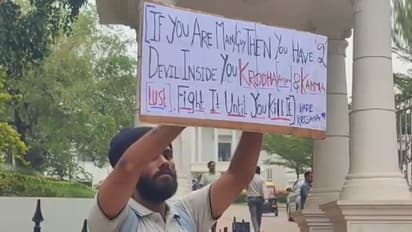 If you are Man then you have 2
Devil inside you Krodha(anger) & Kamma
[Lust]. Fight it until you kill it]
HARE
KRISHNA